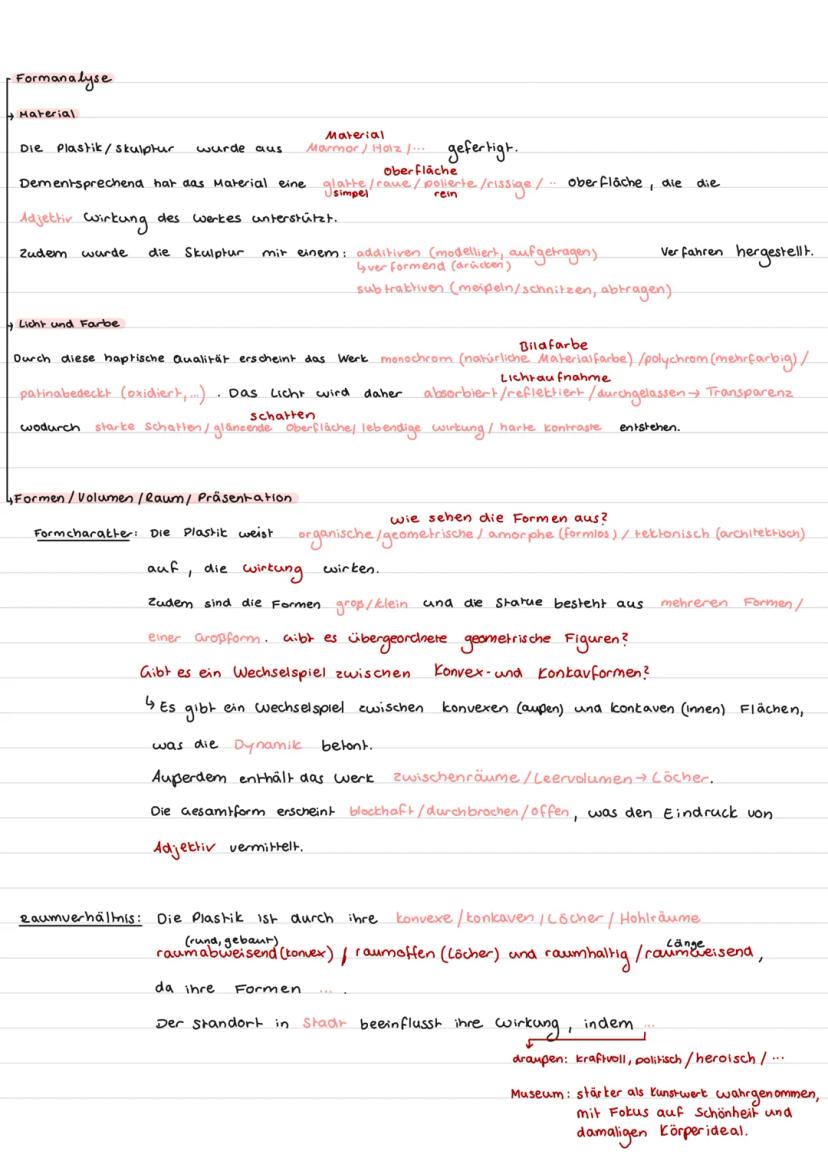 Formanalyse
Material
Material
Die Plastik/Skulptur wurde aus Marmor/Holz/... gefertigt.
Oberfläche
Dementsprechend hat das Material eine glatte/raue/polierte/rissige/.. Oberfläche, die die
simpel rein
Adjektiv Wirkung des Werkes unterstützt.
Zudem wurde die Skulptur mit einem: additiven (modelliert, aufgetragen) Verfahren hergestellt.
↳verformend (drücken)
subtraktiven (meißeln/schnitzen, abtragen)
Licht und Farbe
Bildfarbe
Durch diese haptische Qualität erscheint das Werk monochrom (natürliche Materialfarbe)/polychrom(mehrfarbig)/
Lichtaufnahme
patinabedeckt (oxidiert,...). Das Licht wird daher absorbiert/reflektiert/durchgelassen→ Transparenz
Schatten
wodurch starke Schatten/glänzende Oberfläche/lebendige Wirkung/harte Kontraste entstehen.
Formen/Volumen/Raum/Präsentation
Wie sehen die Formen aus?
Formcharakter: Die Plastik weist organische/geometrische/amorphe (formlos)/tektonisch (architektisch)
auf, die Wirkung wirken.
Zudem sind die Formen groß/klein und die Statue besteht aus mehreren Formen/
einer Großform. Gibt es übergeordnete geometrische Figuren?
Gibt es ein Wechselspiel zwischen Konvex-und Konkavformen?
↳ Es gibt ein Wechselspiel zwischen konvexen (außen) und konkaven (innen) Flächen,
was die Dynamik betont.
Außerdem enthält das Werk Zwischenräume/Leervolumen→Löcher.
Die Gesamtform erscheint blockhaft/durchbrochen/offen, was den Eindruck von
Adjektiv vermittelt.
Raumverhältnis: Die Plastik ist durch ihre konvexe/konkaven/Löcher/Hohlräume
(rund, gebaut) Länge
raumabweisend(konvex)/raumoffen (Löcher) und raumhaltig/raumweisend,
da ihre Formen ... .
Der Standort in Stadt beeinflusst ihre Wirkung, indem ...
draußen: kraftvoll, politisch/heroisch/...
Museum: stärker als Kunstwerk wahrgenommen,
mit Fokus auf Schönheit und
damaligen Körperideal.